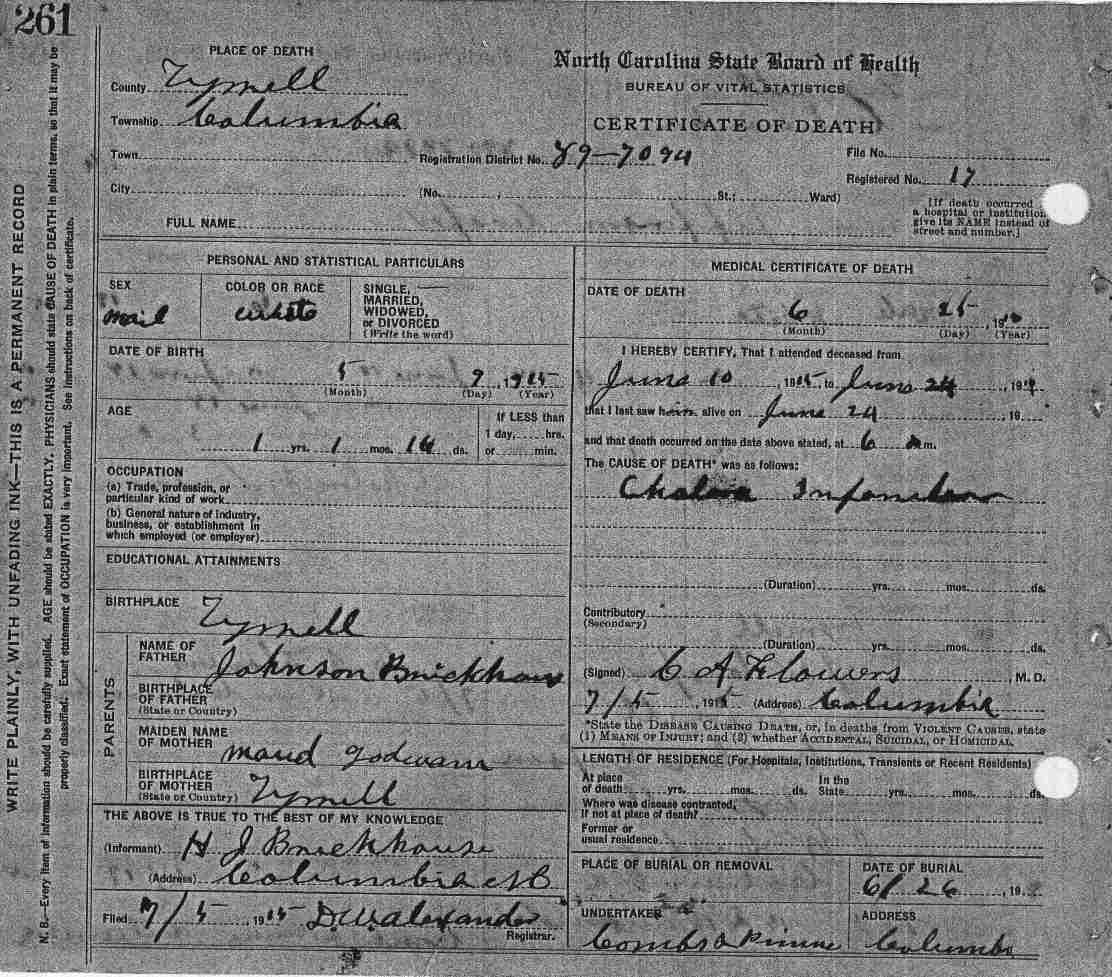 261
WRITE PLAINLY, WITH UNFADING INK—THIS IS A PERMANENT RECORD
N. B.—Every item of information should be carefully supplied. AGE should be stated EXACTLY. PHYSICIANS should state CAUSE OF DEATH in plain terms, so that it may be
properly classified. Exact statement of OCCUPATION is very important. See instructions on back of certificate.
PLACE OF DEATH
County Tyrrell
Township Columbia
Town
City (No. , St.; Ward)
North Carolina State Board of Health
BUREAU OF VITAL STATISTICS
CERTIFICATE OF DEATH
Registration District No. 89-7094
File No.
Registered No. 17
[If death occurred
a hospital or institution
give its NAME instead of
street and number.]
FULL NAME
PERSONAL AND STATISTICAL PARTICULARS
SEX
mail
COLOR OR RACE
white
SINGLE,
MARRIED,
WIDOWED,
or DIVORCED
(Write the word)
DATE OF BIRTH
5 9, 1915
(Month) (Day) (Year)
AGE
1 yrs. 1 mos. 14 ds.
If LESS than
1 day, hrs.
or min.
OCCUPATION
(a) Trade, profession, or
particular kind of work
(b) General nature of industry,
business, or establishment in
which employed (or employer)
EDUCATIONAL ATTAINMENTS
BIRTHPLACE
Tyrrell
PARENTS
NAME OF
FATHER
Johnson Brickhouse
BIRTHPLACE
OF FATHER
(State or Country)
MAIDEN NAME
OF MOTHER
maud godwann
BIRTHPLACE
OF MOTHER
(State or Country) Tyrrell
THE ABOVE IS TRUE TO THE BEST OF MY KNOWLEDGE
(Informant) H J Brickhouse
(Address) Columbia NC
Filed 7/5 1915 D.W. alexander
Registrar.
MEDICAL CERTIFICATE OF DEATH
DATE OF DEATH
6 25, 19
(Month) (Day) (Year)
I HEREBY CERTIFY, That I attended deceased from
June 10, 1915, to June 24, 191
that I last saw him alive on June 24, 19
and that death occurred on the date above stated, at 6 a m.
The CAUSE OF DEATH* was as follows:
Cholera Infantum
(Duration) yrs. mos. ds.
Contributory
(Secondary)
(Duration) yrs. mos. ds.
(Signed) C A Flowers, M. D.
7/5, 1915 (Address) Columbia
*State the DISEASE CAUSING DEATH, or, in deaths from VIOLENT CAUSES, state
(1) MEANS OF INJURY; and (2) whether ACCIDENTAL, SUICIDAL, or HOMICIDAL.
LENGTH OF RESIDENCE (For Hospitals, Institutions, Transients or Recent Residents)
At place
of death yrs. mos. ds.
In the
State yrs. mos. ds.
Where was disease contracted,
If not at place of death?
Former or
usual residence
PLACE OF BURIAL OR REMOVAL
DATE OF BURIAL
6/26, 19
UNDERTAKER
Combs &
ADDRESS
Columbia